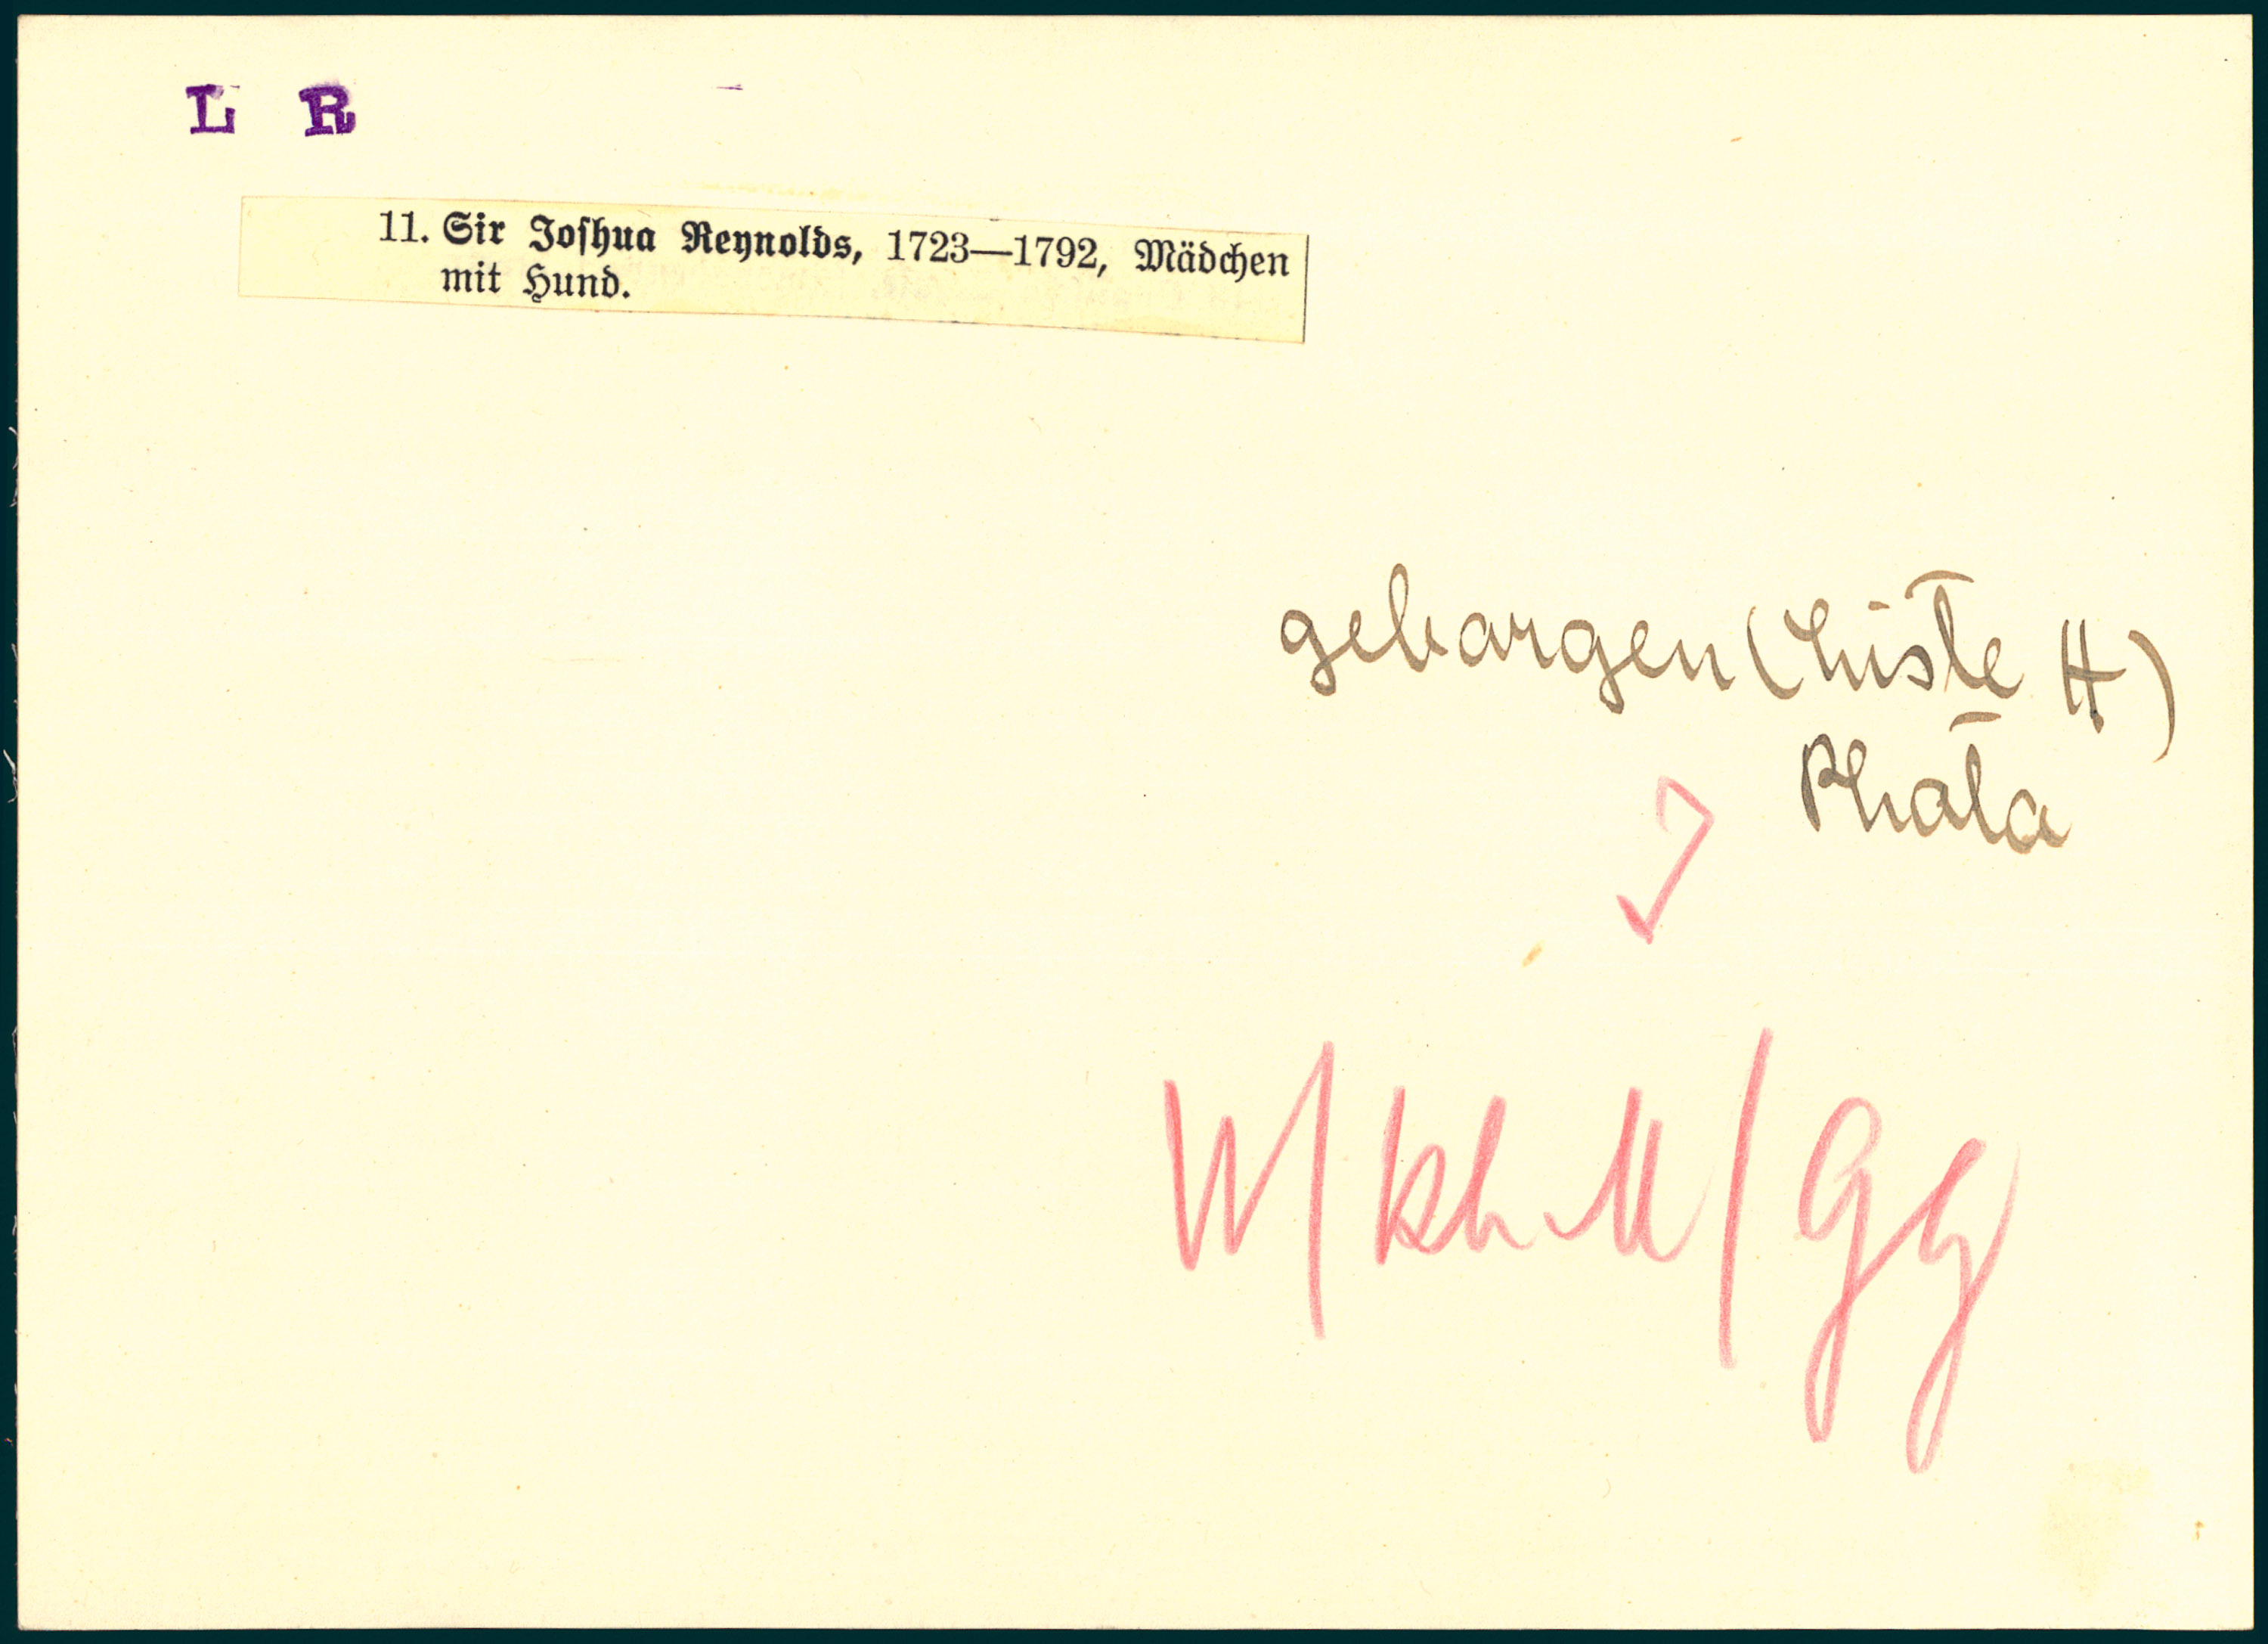 L R
11. Sir Joshua Reynolds, 1723—1792, Mädchen
mit Hund.
geborgen (Liste H)
Photo
W/KhM/Gg